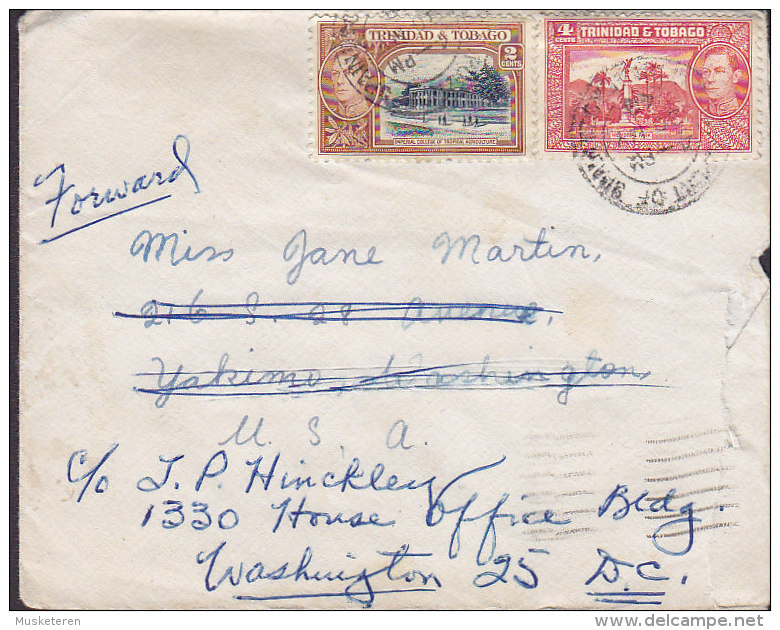 TRINIDAD & TOBAGO
2
CENTS
IMPERIAL COLLEGE OF TROPICAL AGRICULTURE
4
CENTS
TRINIDAD & TOBAGO
PM
PM
Forward
Miss Jane Martin,
216 S. 28 Avenue,
Yakima, Washington,
U. S. A.
c/o J. P. Hinckley
1330 House Office Bldg.
Washington 25 D.C.
© Musketeren
delcampe.net